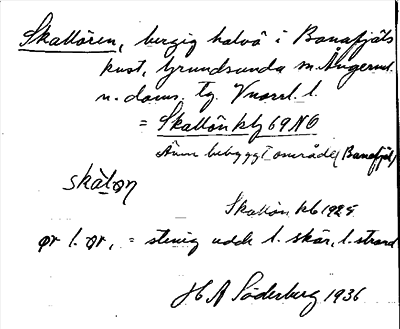 Skallören, bergig halvö i Banafjäls
kust, Grundsunda sn. Ångerml.
n. doms. tg. Vnorrl. l.
= Skallön kbl 69 NO
Även bebyggt område (Banafjäl)
skàløn
Skallön kb 1925
ør l. ør, = stenig udde l. skär, l. strand
H A Söderberg 1936